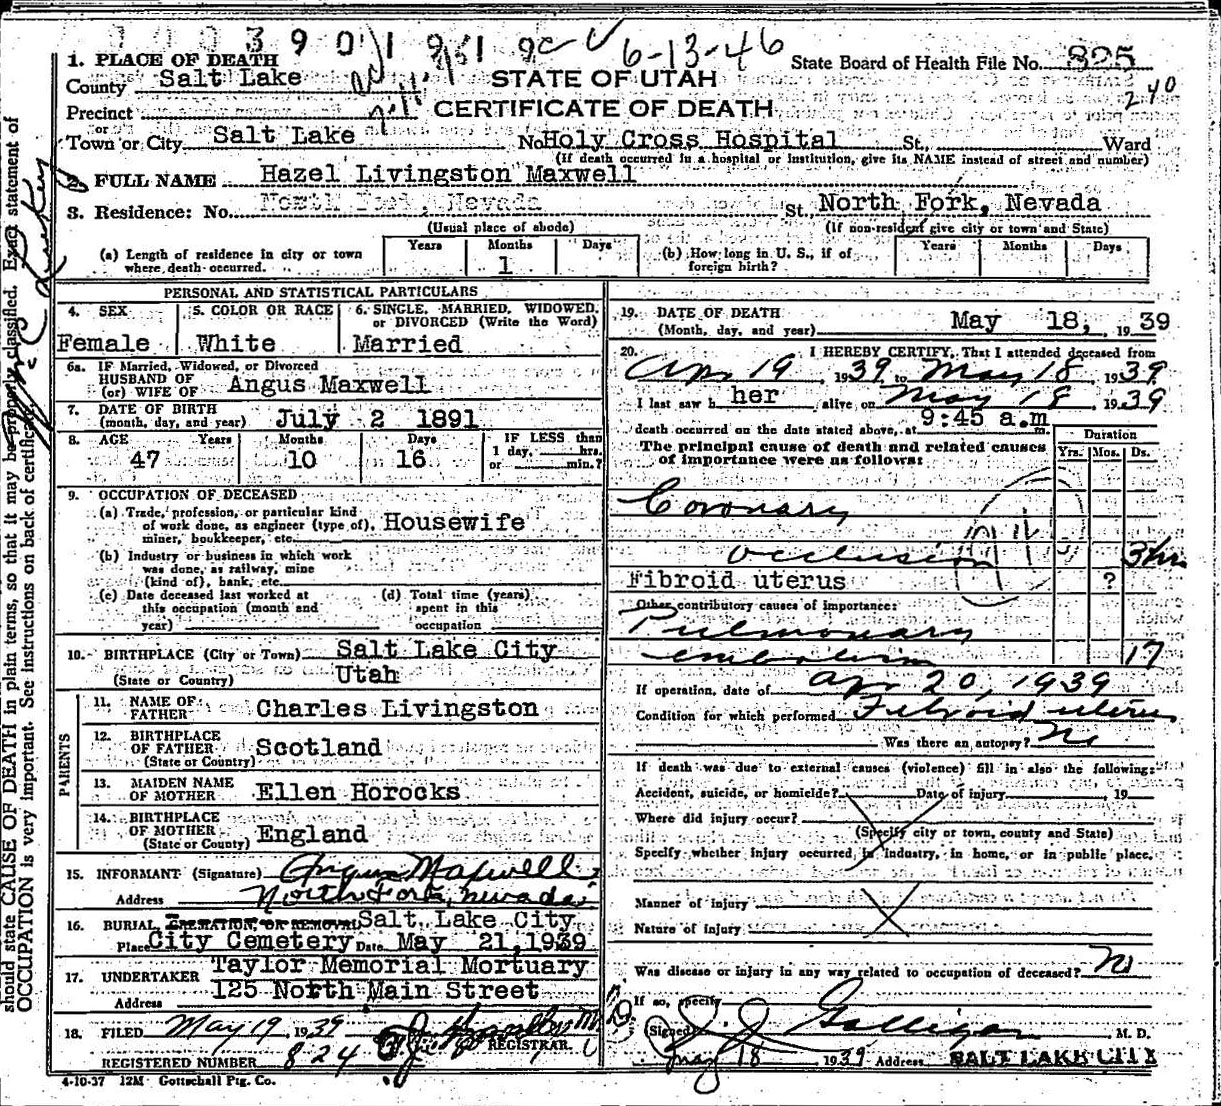 3 9 0 6-13-46
State Board of Health File No. 825
240
1. PLACE OF DEATH
County Salt Lake
STATE OF UTAH
Precinct
CERTIFICATE OF DEATH
or
Town or City Salt Lake No. Holy Cross Hospital St., Ward
(If death occurred in a hospital or institution, give its NAME instead of street and number)
2. FULL NAME Hazel Livingston Maxwell
3. Residence: No. North Fork, Nevada St. North Fork, Nevada
(Usual place of abode) (If non-resident give city or town and State)
(a) Length of residence in city or town where death occurred. Years Months 1 Days
(b) How long in U. S., if of foreign birth? Years Months Days
should state CAUSE OF DEATH in plain terms, so that it may be properly classified. Exact statement of
OCCUPATION is very important. See instructions on back of certificate.
PERSONAL AND STATISTICAL PARTICULARS
4. SEX 5. COLOR OR RACE 6. SINGLE, MARRIED, WIDOWED, or DIVORCED (Write the Word)
Female White Married
6a. IF Married, Widowed, or Divorced
HUSBAND OF
(or) WIFE OF Angus Maxwell
7. DATE OF BIRTH
(month, day, and year) July 2 1891
8. AGE Years Months Days IF LESS than
1 day, hrs.
or min.?
47 10 16
9. OCCUPATION OF DECEASED
(a) Trade, profession, or particular kind
of work done, as engineer (type of),
miner, bookkeeper, etc. Housewife
(b) Industry or business in which work
was done, as railway, mine
(kind of), bank, etc.
(c) Date deceased last worked at
this occupation (month and
year)
(d) Total time (years)
spent in this
occupation
10. BIRTHPLACE (City or Town) Salt Lake City
(State or Country) Utah
PARENTS
11. NAME OF
FATHER Charles Livingston
12. BIRTHPLACE
OF FATHER Scotland
(State or Country)
13. MAIDEN NAME
OF MOTHER Ellen Horocks
14. BIRTHPLACE
OF MOTHER England
(State or County)
15. INFORMANT (Signature) Angus Maxwell
Address North Fork, Nevada
16. BURIAL, CREMATION, OR REMOVAL Salt Lake City
Place City Cemetery Date May 21, 1939
17. UNDERTAKER Taylor Memorial Mortuary
Address 125 North Main Street
18. FILED May 19, 1939
REGISTRAR.
REGISTERED NUMBER 824
4-10-37 12M Gottschall Ptg. Co.
19. DATE OF DEATH
(Month, day, and year) May 18, 1939
20. I HEREBY CERTIFY, That I attended deceased from
Apr 19, 1939 to May 18 1939
I last saw her alive on May 18 1939
death occurred on the date stated above, at 9:45 a.m m.
The principal cause of death and related causes
of importance were as follows:
Duration
Yrs. Mos. Ds.
Coronary
occlusion 3 hrs
Fibroid uterus ?
Other contributory causes of importance:
Pulmonary
embolism 17
If operation, date of Apr 20, 1939
Condition for which performed Fibroid uterus
Was there an autopsy? No
If death was due to external causes (violence) fill in also the following:
Accident, suicide, or homicide? Date of injury 19
Where did injury occur?
(Specify city or town, county and State)
Specify whether injury occurred in industry, in home, or in public place.
Manner of injury
Nature of injury
Was disease or injury in any way related to occupation of deceased? No
If so, specify
(Signed) J. J. Galligan M. D.
May 18 1939 Address SALT LAKE CITY